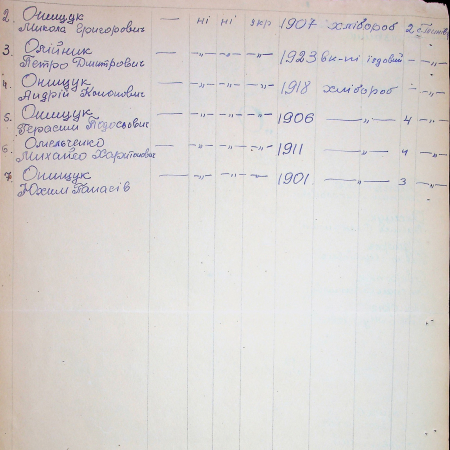 2. Онищук — ні ні укр 1907 хлібороб 2
Микола Григорович
3. Олійник — -„- -„- -„- 1923 їздовий - -„-
Петро Дмитрович
4. Онищук — -„- -„- -„- 1918 хлібороб - -„-
Андрій Кононович
5. Онищук — -„- -„- -„- 1906 —„— 4 -„-
Герасим Тодосьович
6. Омельченко — -„- -„- -„- 1911 —„— 4 -„-
Михайло Харитонович
7. Онищук — -„- -„- -„- 1901 —„— 3 -„-
Юхим Панасів